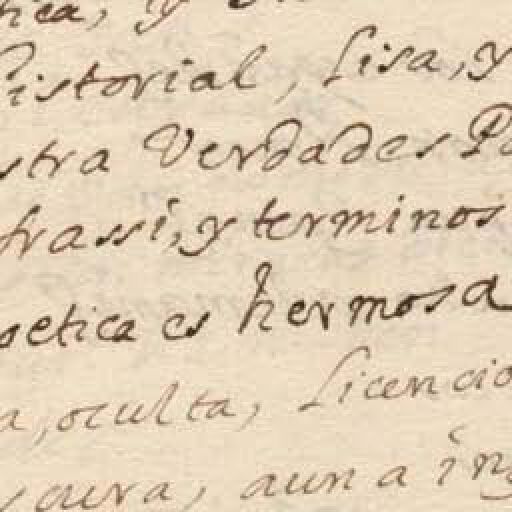 y
istorial, lisa, y
stra Verdades
frassi, y terminos
oetica es hermosa
a, oculta, licencio
aun a ing